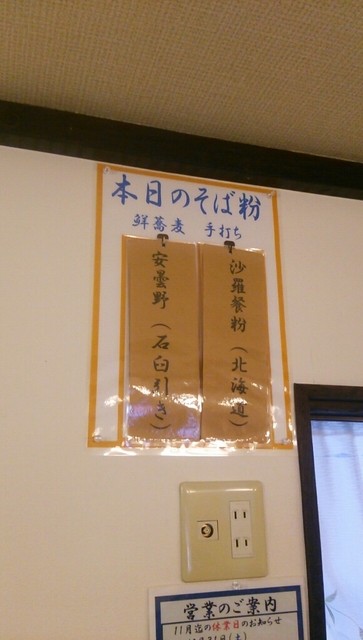 本日のそば粉
鮮蕎麦 手打ち
沙羅餐粉（北海道）
安曇野（石臼引き）
営業のご案内
11月迄の休業日のお知らせ